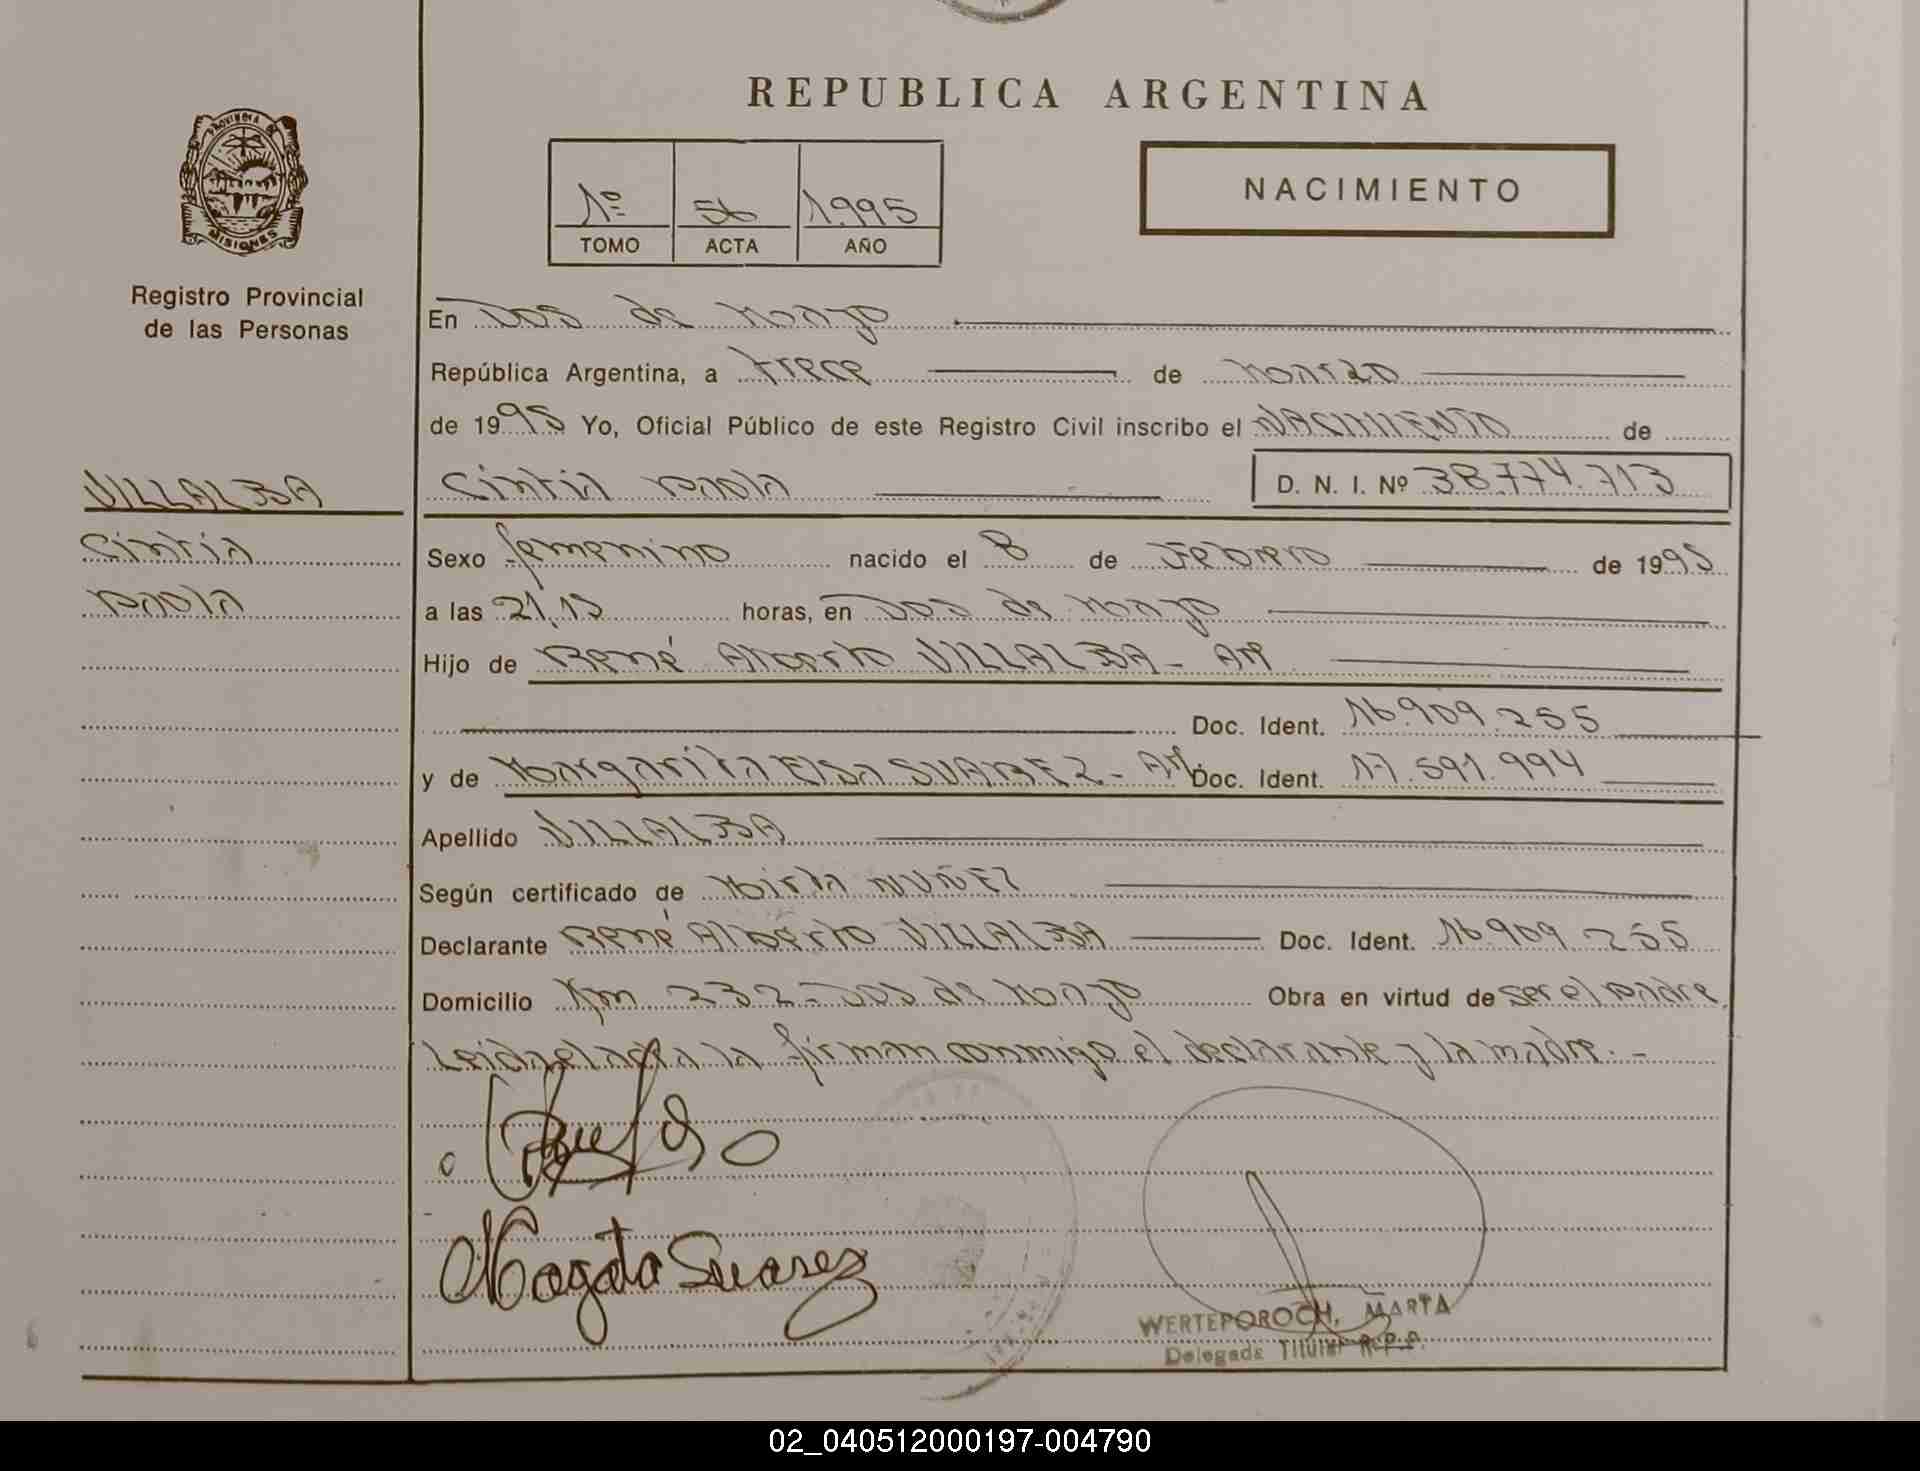 REPUBLICA ARGENTINA
PROVINCIA DE
MISIONES
Registro Provincial
de las Personas
1º 56 1995
TOMO ACTA AÑO
NACIMIENTO
En Dos de Mayo
República Argentina, a trece de Marzo
de 1995 Yo, Oficial Público de este Registro Civil inscribo el NACIMIENTO de
VILLALBA
Cintia Paola D. N. I. Nº 38.774.713
Cintia
Paola
Sexo femenino nacido el 8 de Febrero de 1995
a las 21,15 horas, en Dos de Mayo
Hijo de René Alberto VILLALBA - Ar
Doc. Ident. 16.909.255
y de Margarita Elsa SUAREZ - Ar Doc. Ident. 17.591.994
Apellido VILLALBA
Según certificado de Mirta NUÑEZ
Declarante René Alberto VILLALBA Doc. Ident. 16.909.255
Domicilio Km 232 - Dos de Mayo Obra en virtud de ser el padre,
Leida el acta la firman conmigo el declarante y la madre. -
Suarez
WERTEPOROCH, MARTA
Delegada Titular R.P.P.
02_040512000197-004790